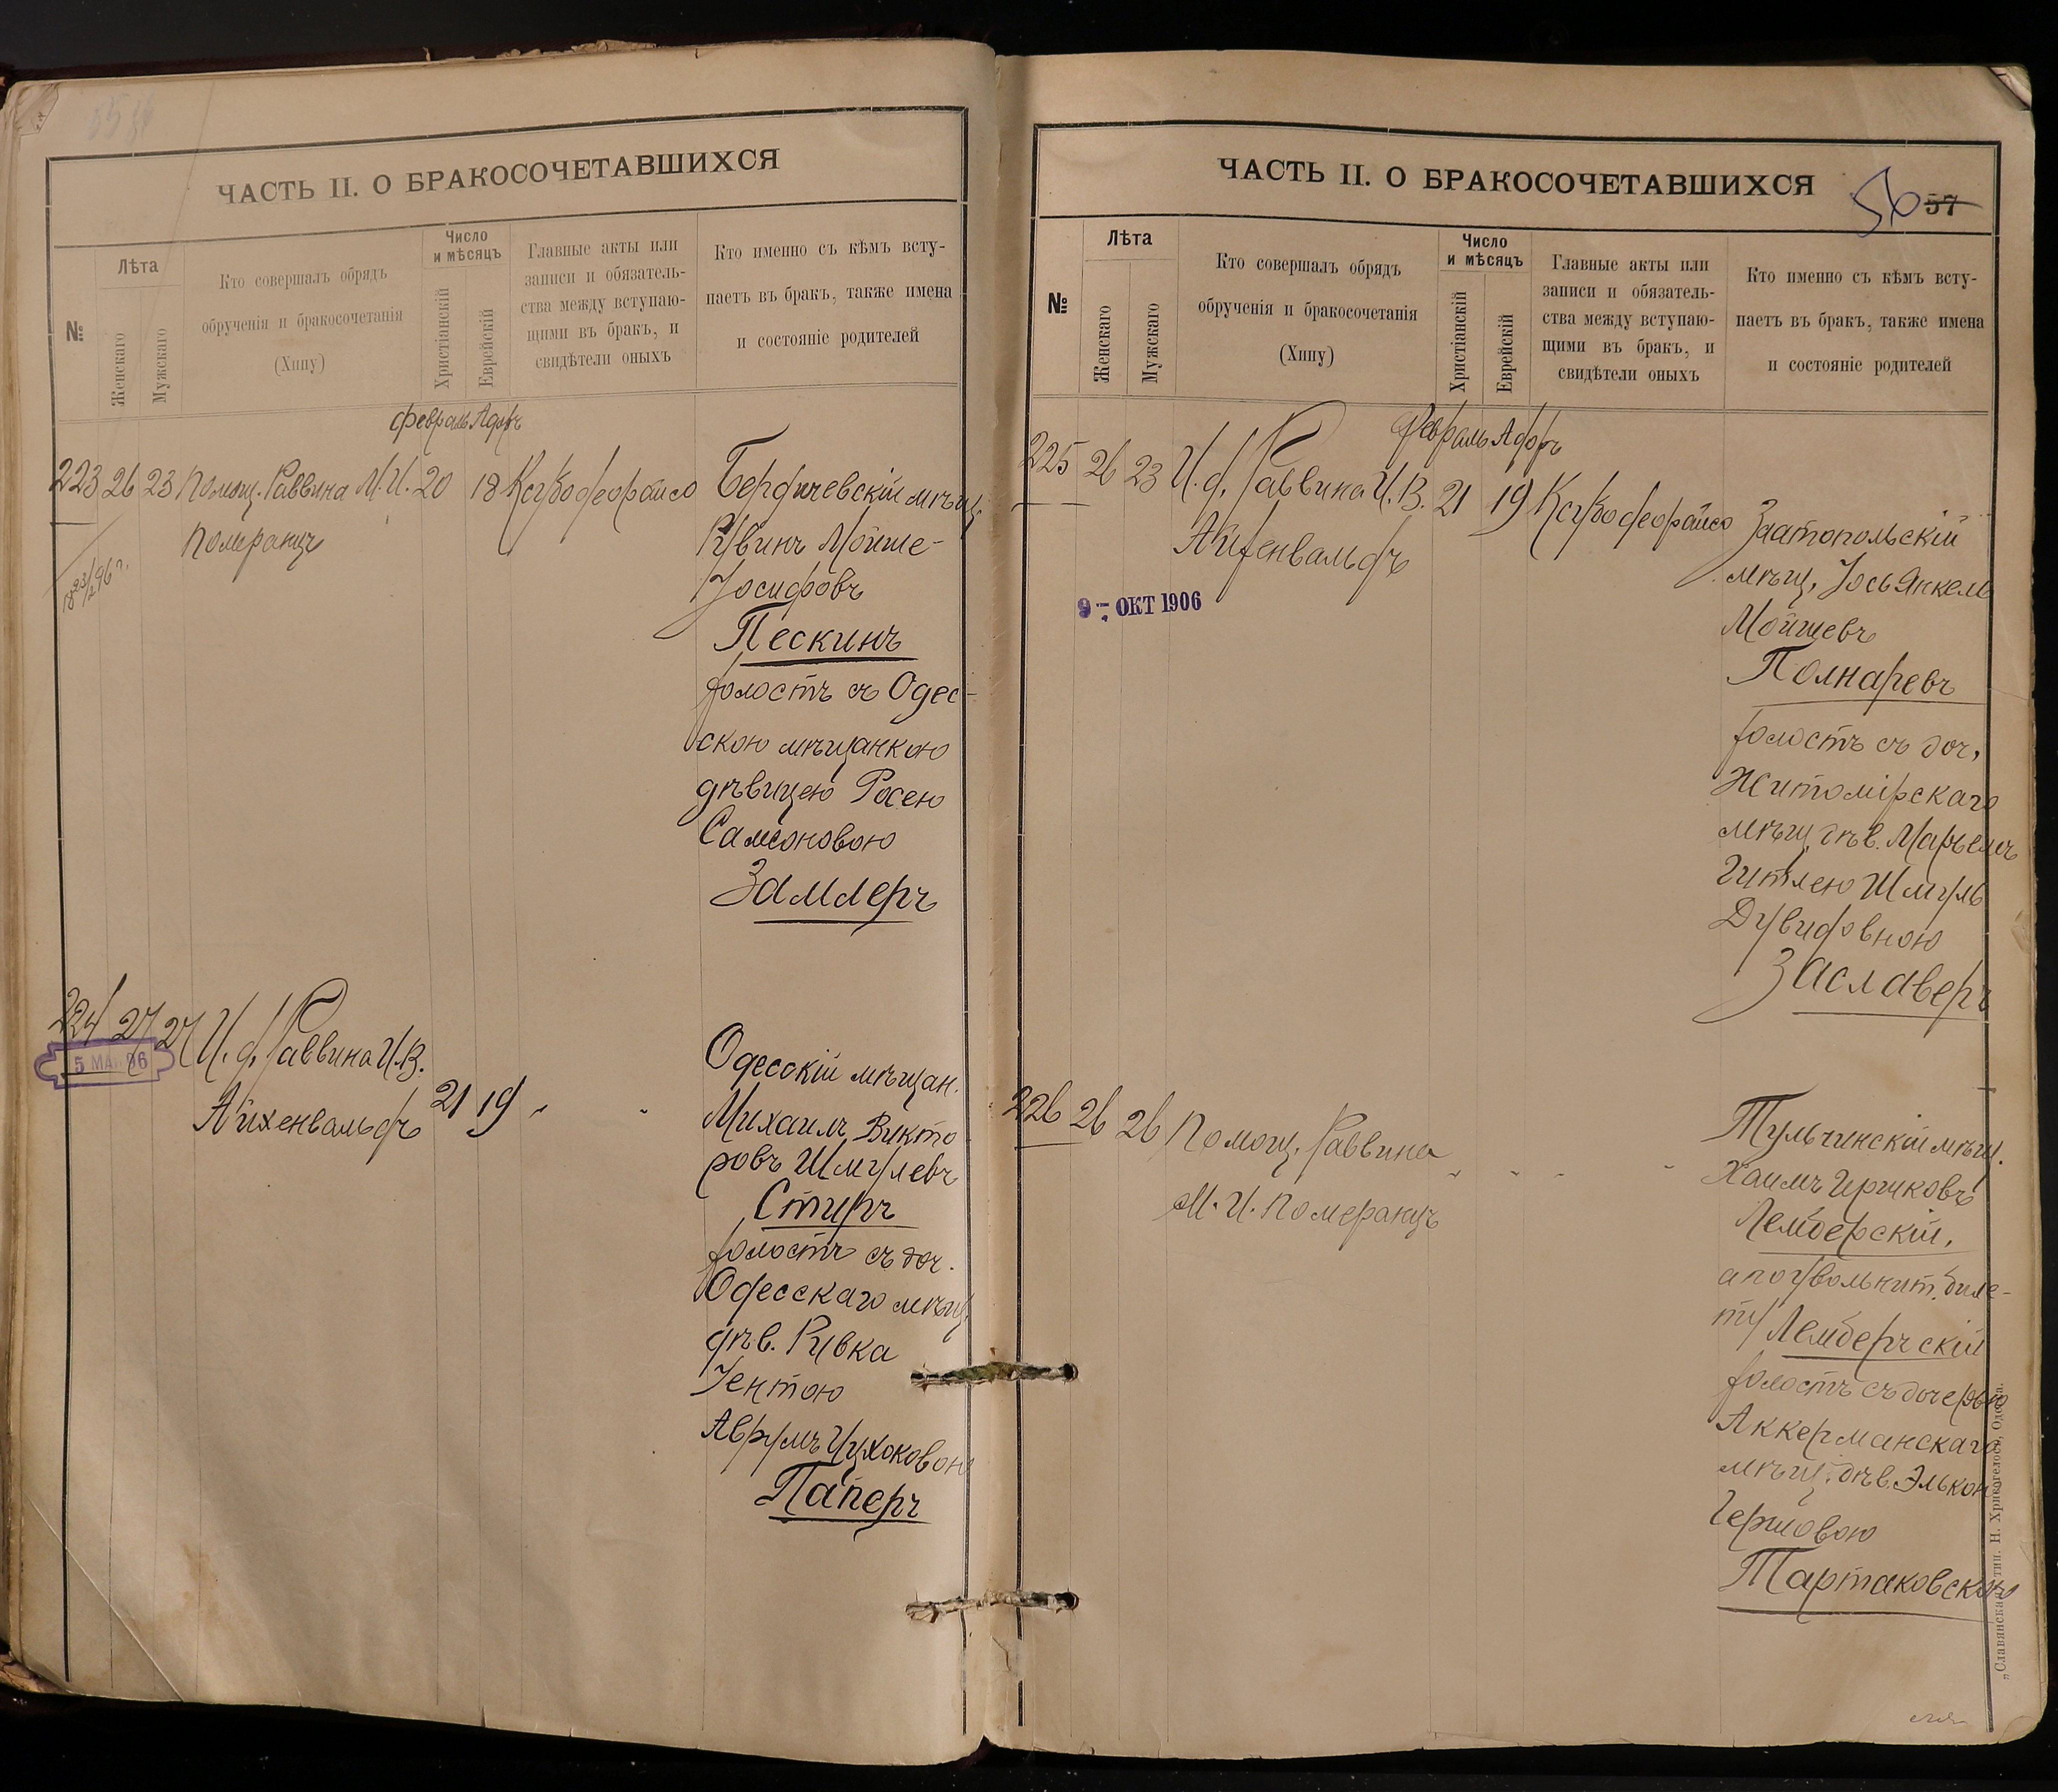 ЧАСТЬ II. О БРАКОСОЧЕТАВШИХСЯ
№
Лѣта
Женскаго
Мужскаго
Кто совершалъ обрядъ
обрученія и бракосочетанія
(Хипу)
Число
и мѣсяцъ
Христіанскій
Еврейскій
Главные акты или
записи и обязатель-
ства между вступаю-
щими въ бракъ, и
свидѣтели оныхъ
Кто именно съ кѣмъ всту-
паетъ въ бракъ, также имена
и состояніе родителей
Февраль Адаръ
223 26 23 Помощ. Раввина М. И. 20 18
Померанцъ
Бердичевскій мѣщ.
Рувинъ Мойше-
Іосифовъ
Пескинъ
холостъ съ Одес-
скою мѣщанкою
дѣвицею Росею
Самсоновою
Замлеръ
224 27 27 И. д. Раввина И. В.
5 96
Айхенвальдъ 21 19 " "
Одесскій мѣщан.
Михаилъ Викто
ровъ Шмулевъ
Стиръ
холостъ съ доч.
Одесскаго мѣщ.
дѣв. Ривка
Іентою
Аврумъ Ицхоковою
Паперъ
ЧАСТЬ II. О БРАКОСОЧЕТАВШИХСЯ
56 57
№
Лѣта
Женскаго
Мужскаго
Кто совершалъ обрядъ
обрученія и бракосочетанія
(Хипу)
Число
и мѣсяцъ
Христіанскій
Еврейскій
Главные акты или
записи и обязатель-
ства между вступаю-
щими въ бракъ, и
свидѣтели оныхъ
Кто именно съ кѣмъ всту-
паетъ въ бракъ, также имена
и состояніе родителей
Февраль Адаръ
225 26 23 И. д. Раввина И. В. 21 19
Айхенвальдъ
9- ОКТ 1906
Златопольскій
мѣщ. Іось Янкель
Мойшевъ
Полнаревъ
холостъ съ доч.
Житомірскаго
мѣщ. дѣв. Марьемъ
Гитлею Шмуль
Дувидовною
Заславеръ
226 26 26 Помощ. Раввина " " " "
М. И. Померанцъ
Тульчинскій мѣщ.
Хаимъ Ицковъ
Лемберскій,
а по увольнит. биле-
ту Лембергскій
холостъ съ дочерью
Аккерманскаго
мѣщ. дѣв. Элькою
Гершовою
Тартаковскою
„Славянская" тип. Н. Хрисогелосъ, Одесса.